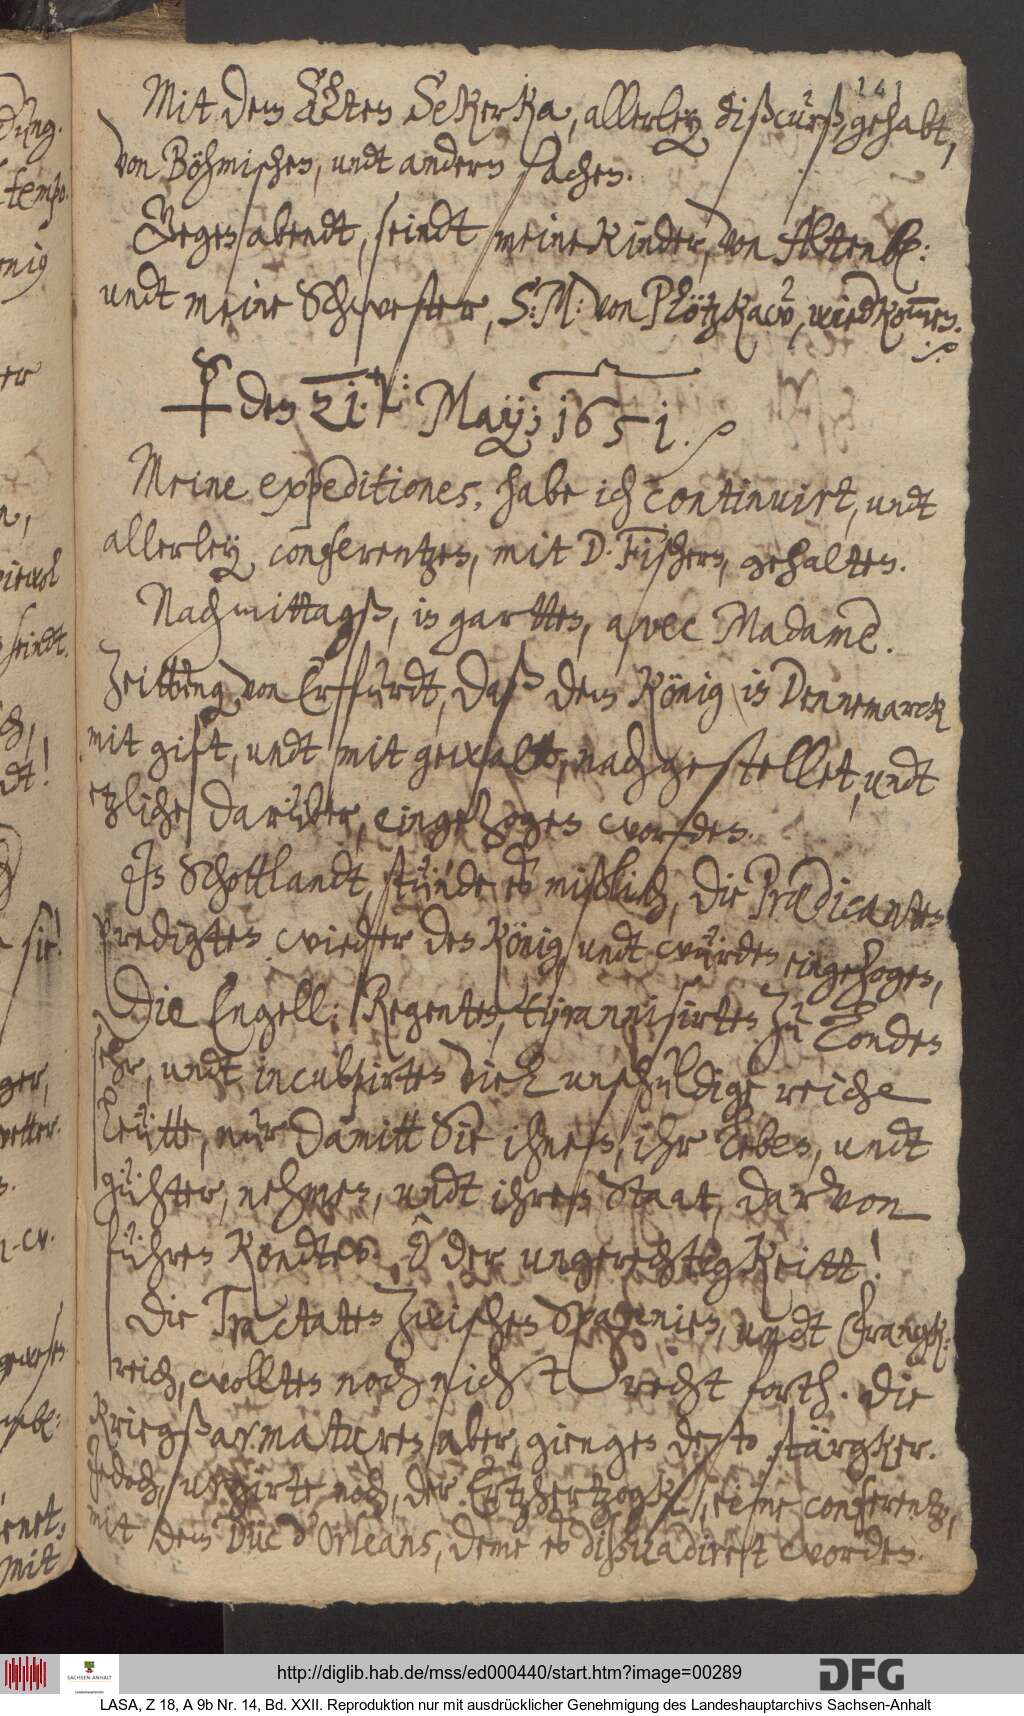 141
Mit dem Sekerka, allerley dißcurß, gehabt,
von Böhmischen, undt andern sachen.
Gegen abendt, seindt meine Kinder, von Altenb:
undt meine Schwester, S: M: von Plötzkaw, wied kommen.
den 21. May; 1651.
Meine expeditiones, habe ich continuirt, undt
allerley conferentzen, mit D. Fischern, gehalten.
Nachmittagß, in gartten, avec Madame.
Zeittung von Erffurdt, daß dem König in Dennemarck
mit gift, undt mit gewaltt, nachgestellet, undt
etzliche darüber, eingezogen worden.
In Schottlandt, stünde es mißlich, die Prædicanten
predigten wieder den König, undt würden eingezogen,
Die Engell: Regenten, tyrannisirten zu Londen
sehr, undt inculpirten viel unschuldige reiche
Leütte, nur damitt Sie ihnen, ihr leben, undt
gühter, nehmen, undt ihren Staat, darvon
führen köndten. O der ungerechtigkeitt!
Die Tractaten zwischen Spannien, undt Franck:
reich, wollten noch nicht recht forth. Die
Kriegßarmaturen aber, giengen desto stärgker.
Jedoch, urgirte noch, der Ertzhertzogk, eine conferentz,
mit dem Duc d'Orleans, deme es dissuadiret worden.
http://diglib.hab.de/mss/ed000440/start.htm?image=00289
SACHSEN-ANHALT
DFG
LASA, Z 18, A 9b Nr. 14, Bd. XXII. Reproduktion nur mit ausdrücklicher Genehmigung des Landeshauptarchivs Sachsen-Anhalt